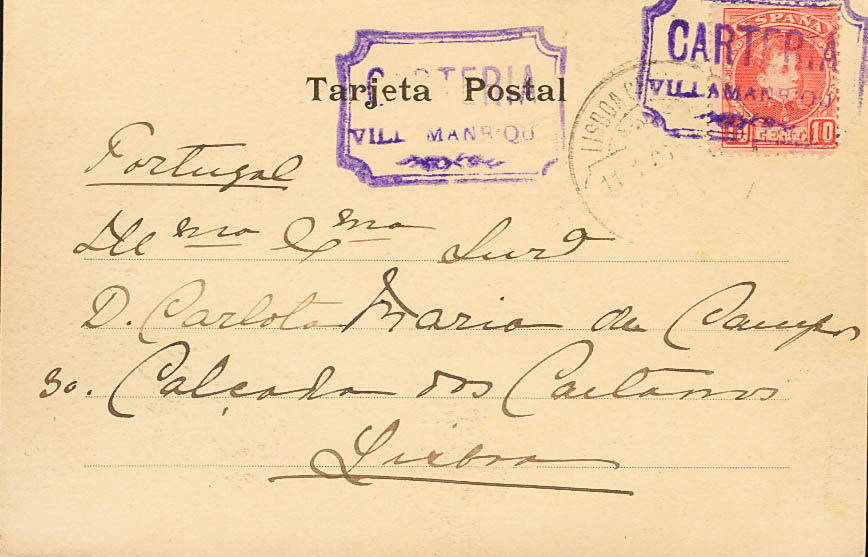 ESPAÑA
CARTERIA
VILLAMANRIQU
10 CENT 10
CARTERIA
VILL MANRIQU
Tarjeta Postal
LISBOA
Portugal
Illma Exma Snrª
D. Carlota Maria de Campos
30. Calçada dos Caetanos
Lisboa